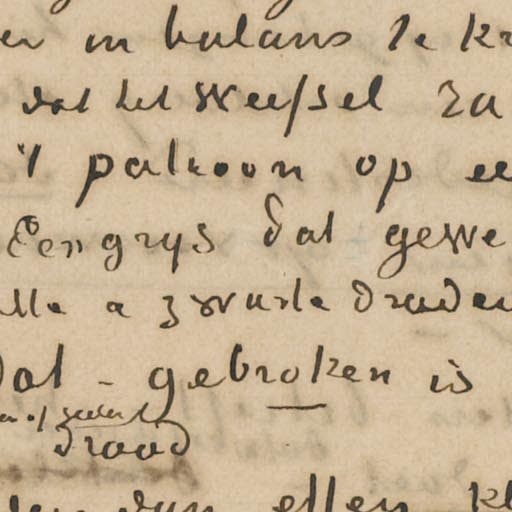 er in balans te kr
dat het weefsel za
't patroon op ee
Een grys dat gewe
tte a zwarte draden
dat - gebroken is
draad
den van effen kl